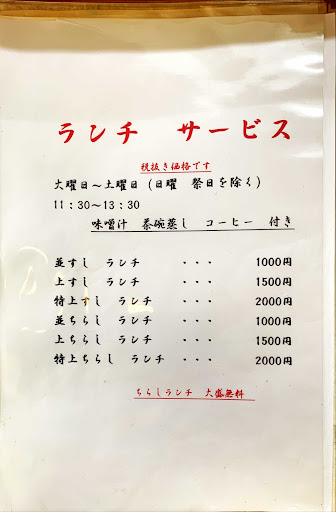 ランチ　サービス
税抜き価格です
火曜日～土曜日（日曜　祭日を除く）
11：30～13：30
味噌汁　茶碗蒸し　コーヒー　付き
並すし　ランチ　・・・　1000円
上すし　ランチ　・・・　1500円
特上すし　ランチ　・・・　2000円
並ちらし　ランチ　・・・　1000円
上ちらし　ランチ　・・・　1500円
特上ちらし　ランチ　・・・　2000円
ちらしランチ　大盛無料